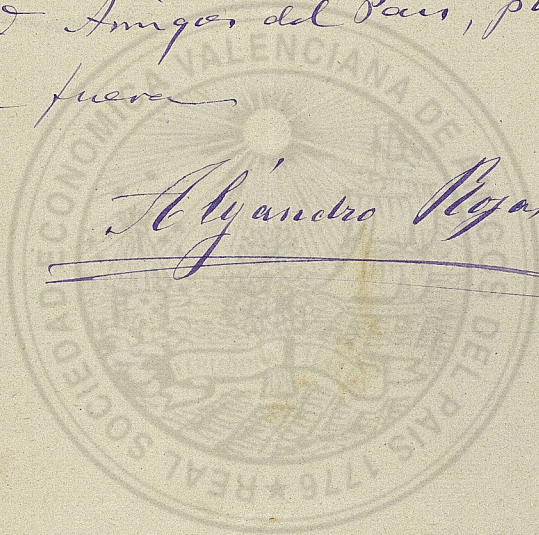 Amigos del Pais,
fuera
Alejandro Rojas
REAL SOCIEDAD ECONOMICA VALENCIANA DE AMIGOS DEL PAIS 1776